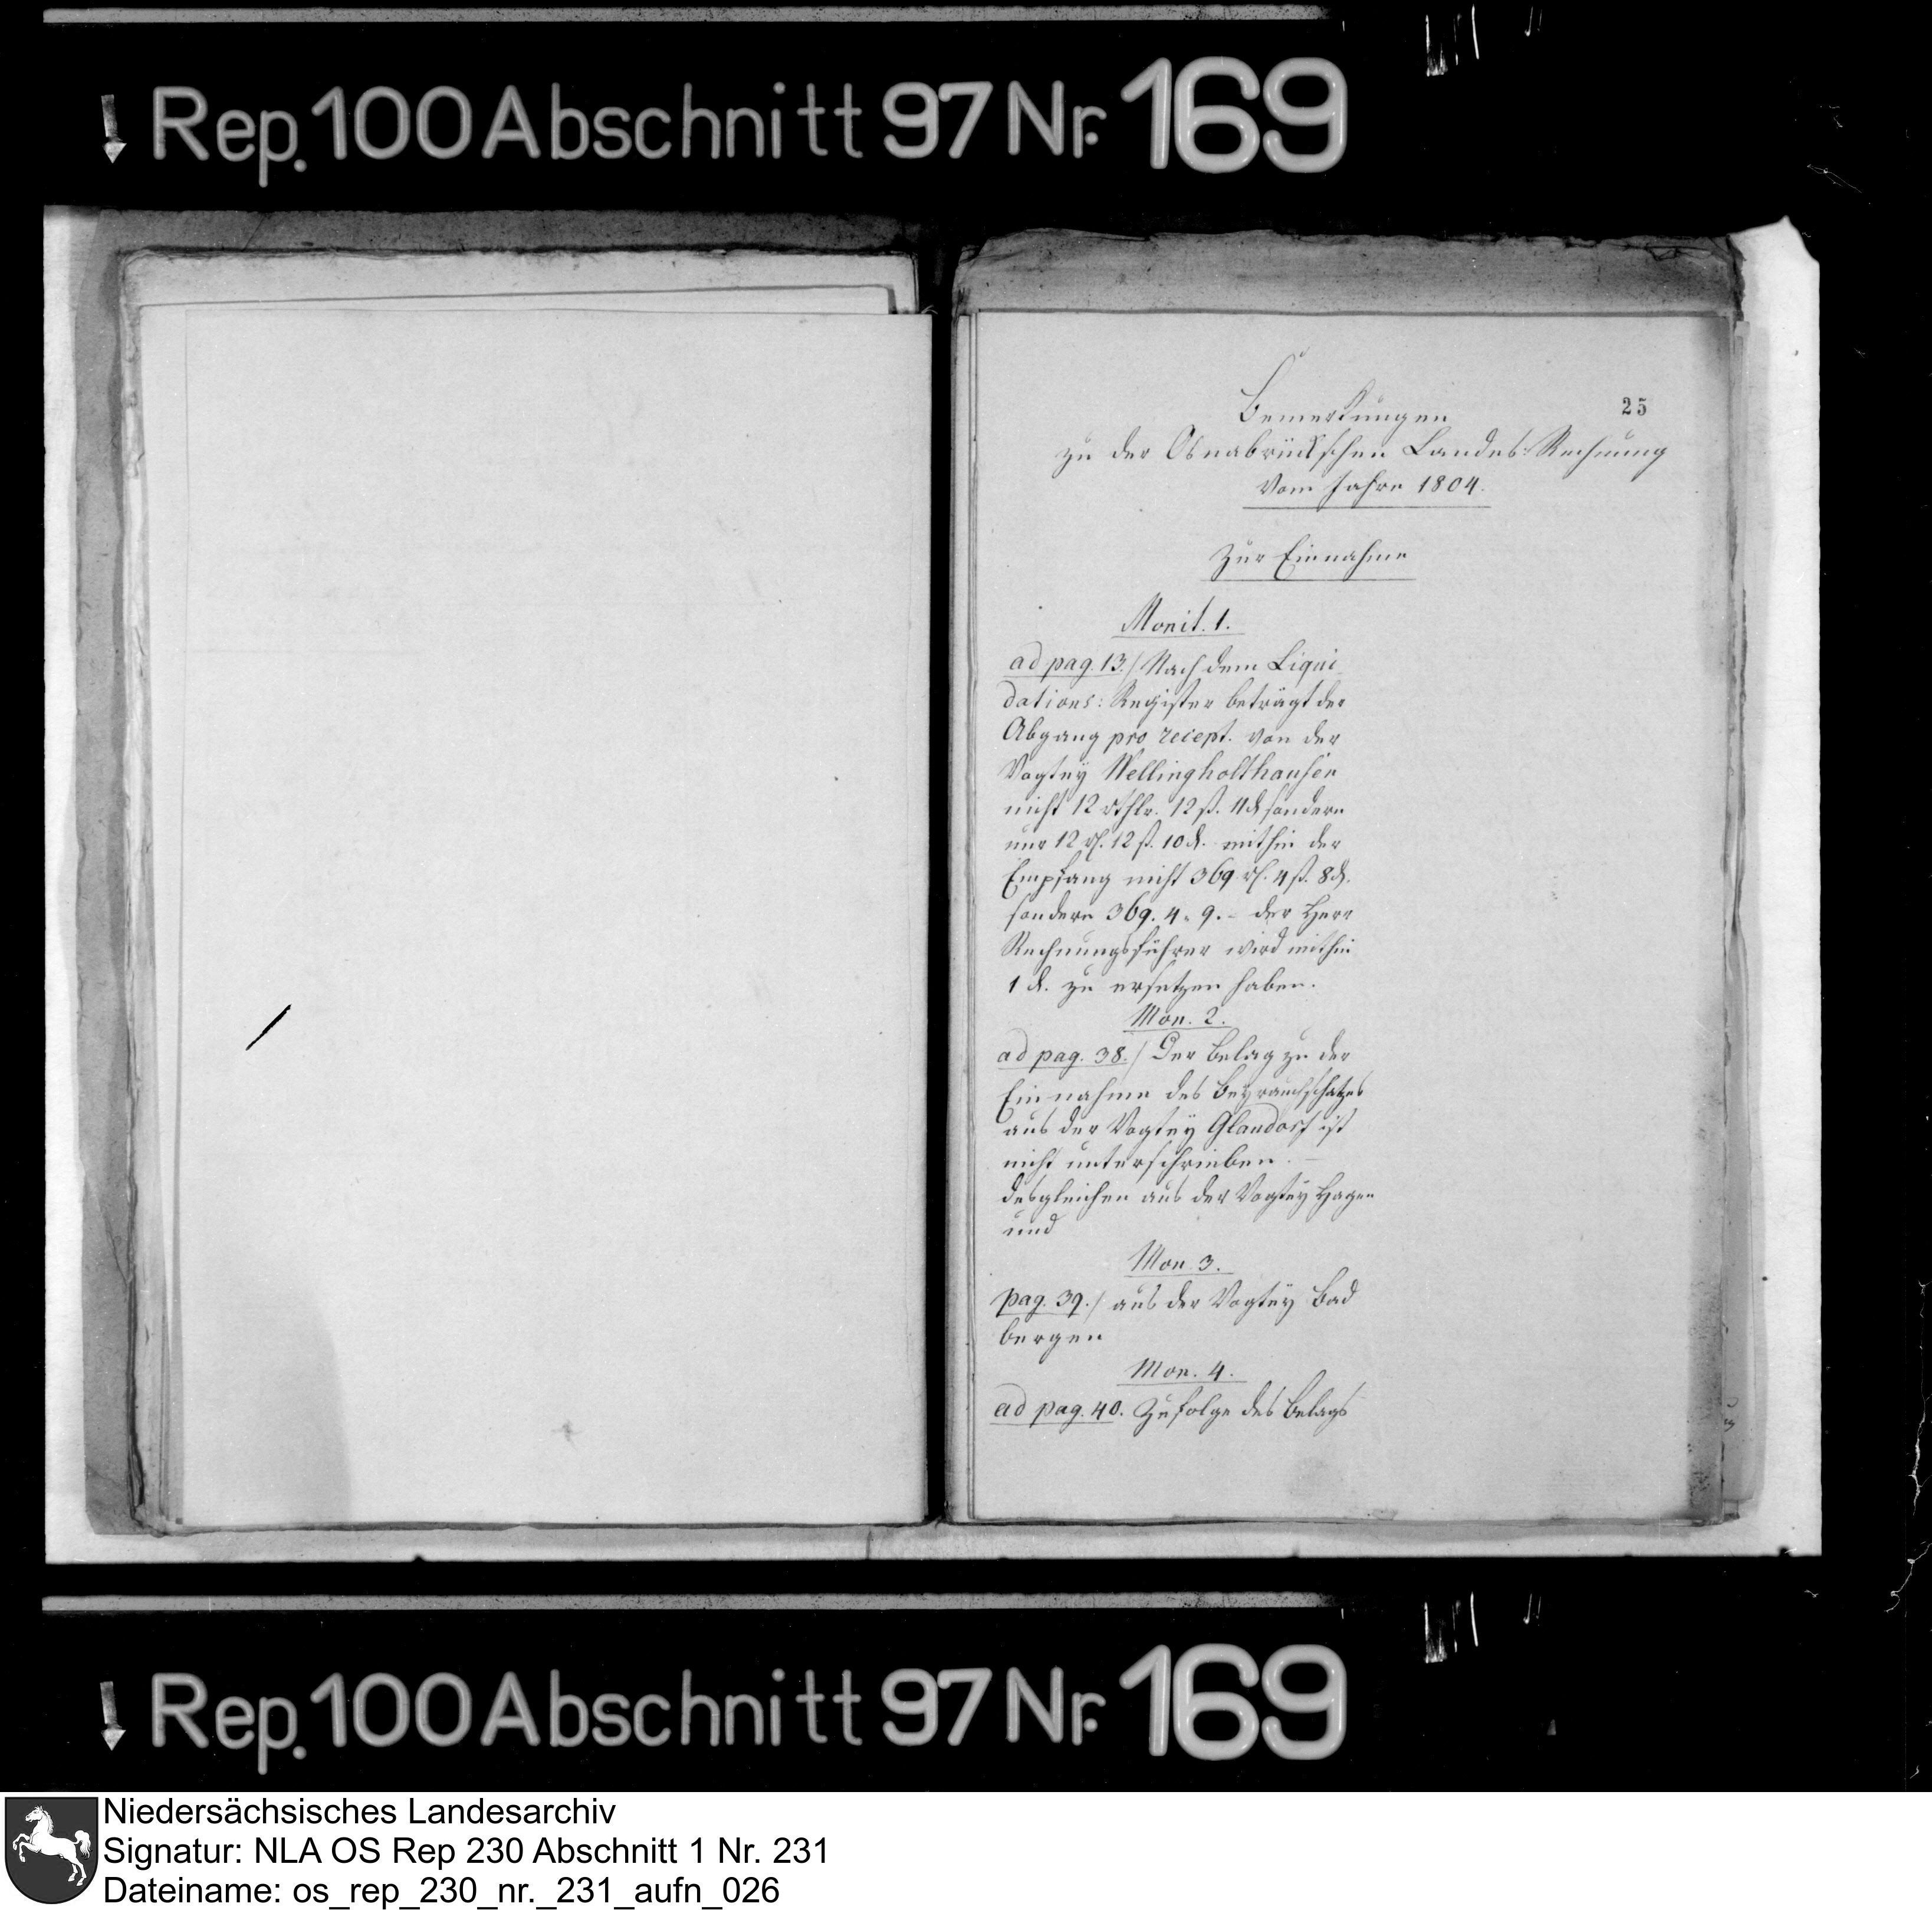 Rep. 100 Abschnitt 97 Nr. 169
25
Bemerkungen
zu der Osnabrückschen Landes-Rechnung
vom Jahre 1804.
Zur Einnahme
Monit. 1.
ad pag. 13./ Nach dem Liqui
dations: Register beträgt der
Abgang pro recept. von der
Vogtey Wellingholthausen
nicht 12 rthlr. 12 ß. 11 d sondern
nur 12 rl. 12 ß. 10 d. mithin der
Empfang nicht 369 rl. 4 ß. 8 d.
sondern 369. 4. 9. – der Herr
Rechnungsführer wird mithin
1 d. zu ersetzen haben.
Mon. 2.
ad pag. 38./ Der Belag zu der
Einnahme des Beyrauchschatzes
aus der Vogtey Glandorf ist
nicht unterschrieben. –
desgleichen aus der Vogtey Hagen
und
Mon. 3.
pag. 39./ aus der Vogtey Bad
bergen
Mon. 4.
ad pag. 40. Zufolge des Belags
Rep. 100 Abschnitt 97 Nr. 169
Niedersächsisches Landesarchiv
Signatur: NLA OS Rep 230 Abschnitt 1 Nr. 231
Dateiname: os_rep_230_nr._231_aufn_026